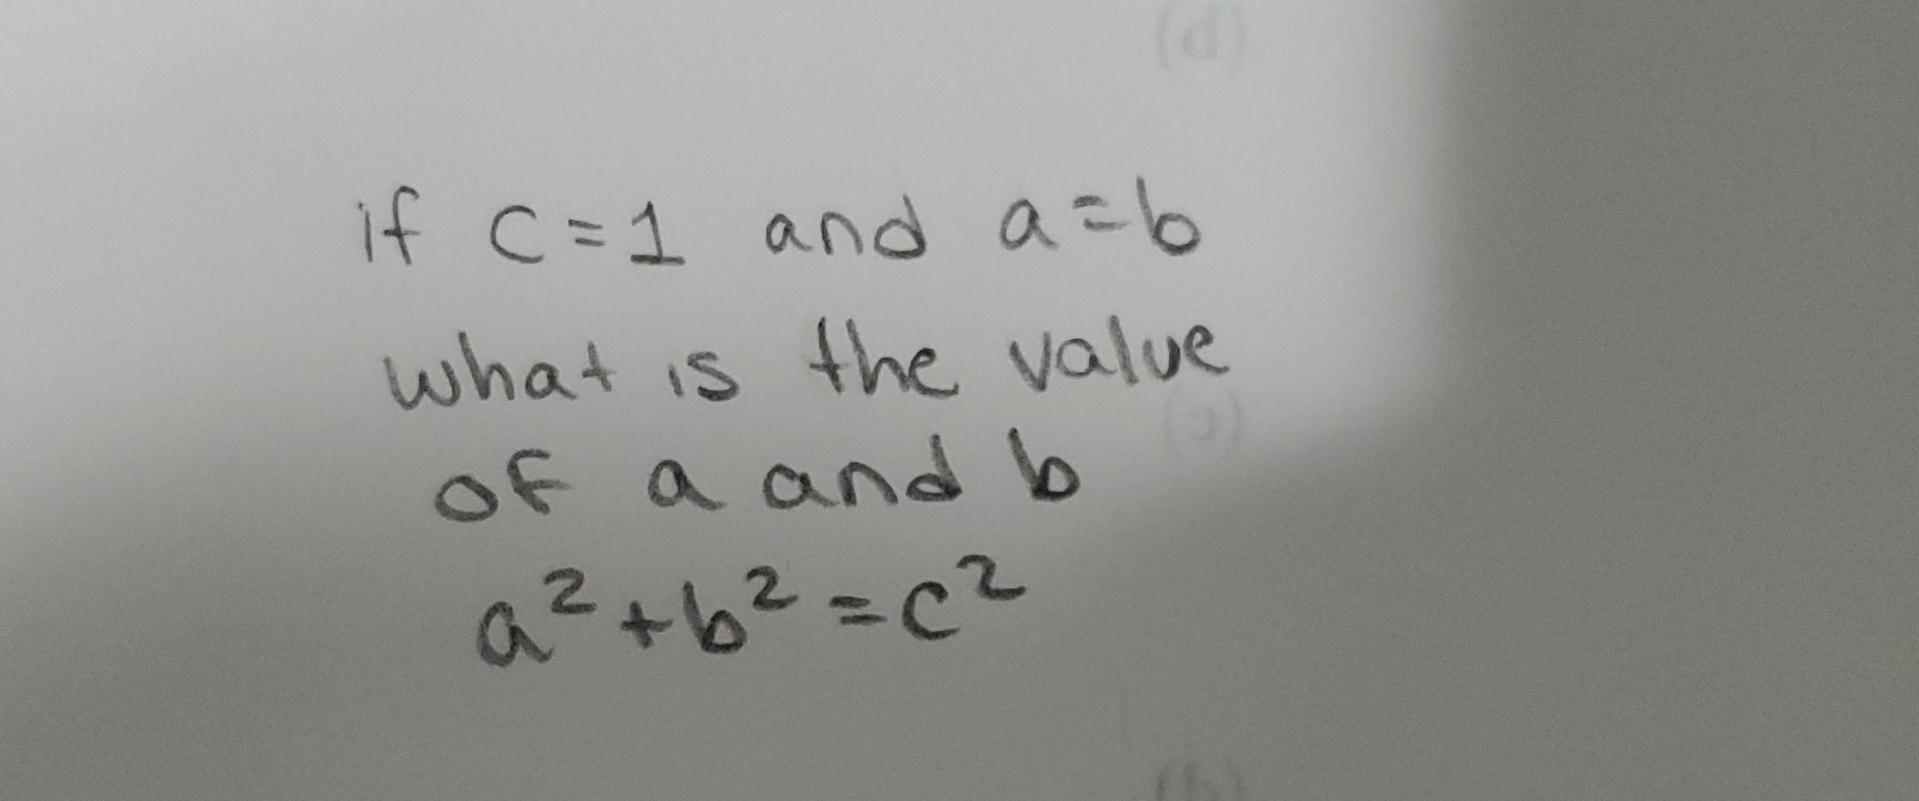 (d)
if c=1 and a=b
what is the value
of a and b
a²+b²=c²